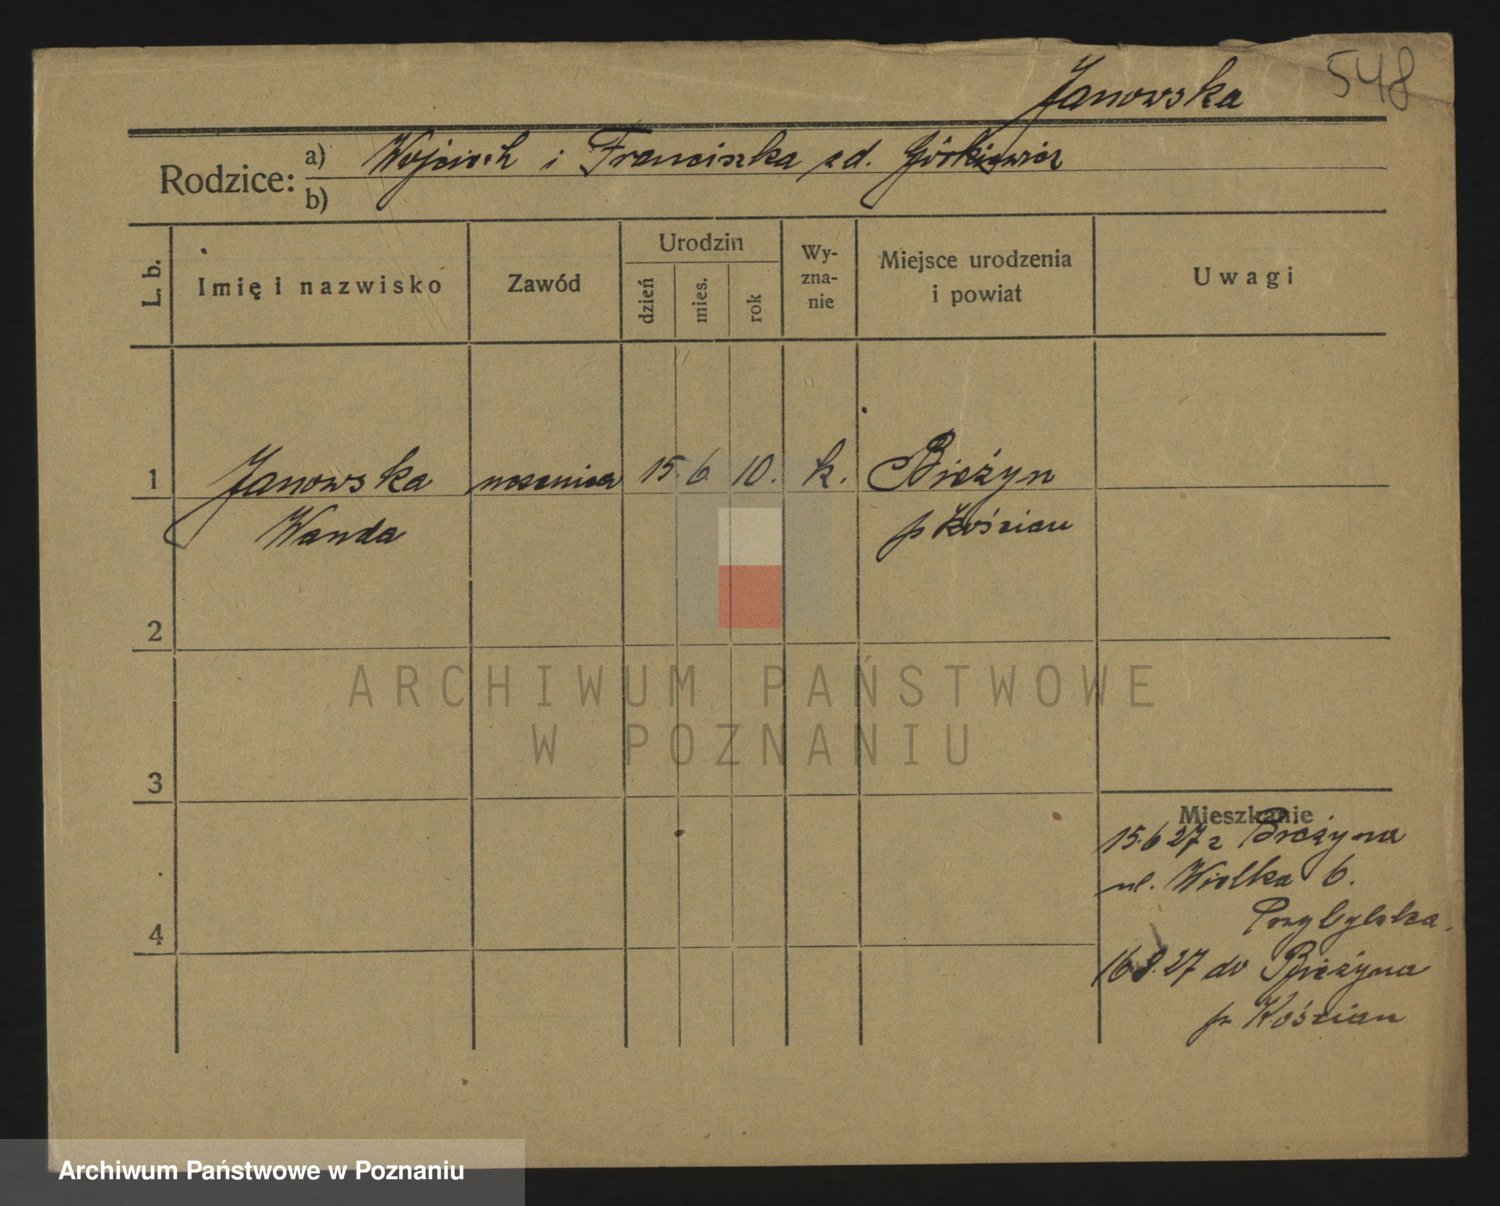 Janowska 548
Rodzice: a) Wojciech i Franciszka zd. Górkiewicz
b)
L. b.
Imię i nazwisko
Zawód
Urodzin
dzień
mies.
rok
Wy-
zna-
nie
Miejsce urodzenia
i powiat
Uwagi
1 Janowska uczenica 15. 6. 10. k. Bieżyn
Wanda p Kościan
2
3
4
Mieszkanie
15.6 27 z Bieżyna
ul. Wielka 6.
Przybylska.
16 27 do Bieżyna
p Kościan
ARCHIWUM PAŃSTWOWE
W POZNANIU
Archiwum Państwowe w Poznaniu